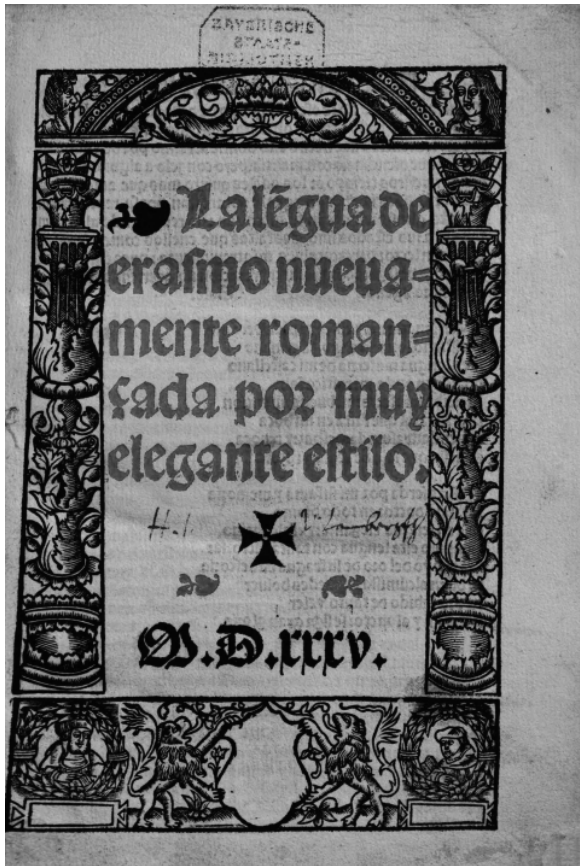 BAYERISCHE
STAATS-
BIBLIOTHEK
La lẽgua de
erasmo nueua-
mente roman-
çada por muy
elegante estilo.
M.D.xxxv.